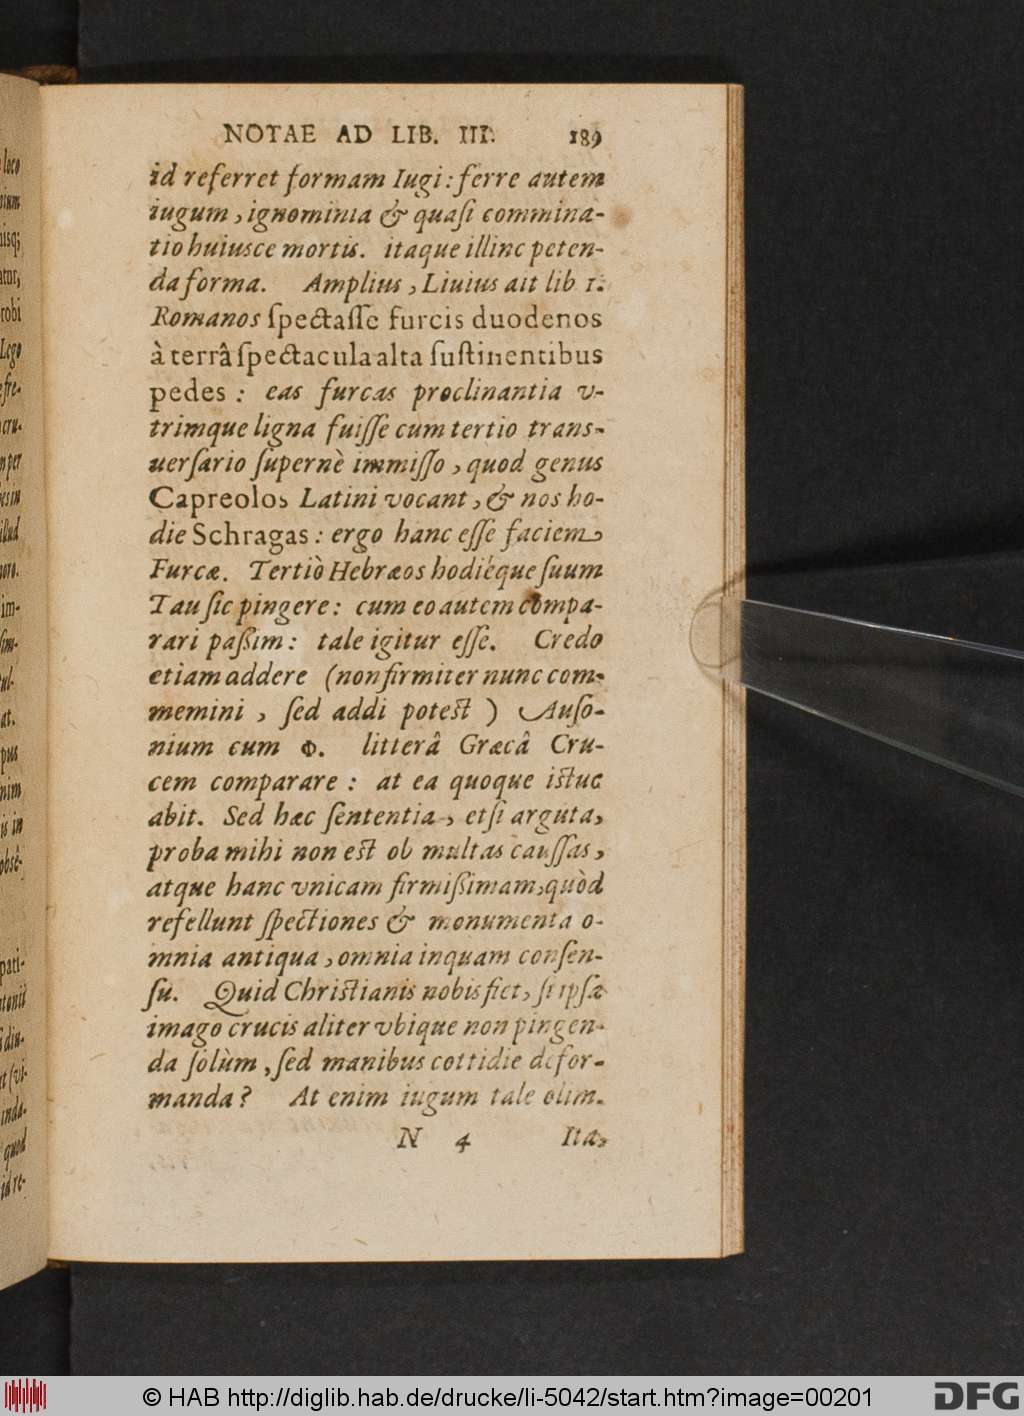 NOTAE AD LIB. III. 189
id referret formam Iugi: ferre autem
iugum, ignominia & quaſi commina-
tio huiusce mortis. itaque illinc peten-
da forma. Amplius, Liuius ait lib 1.
Romanos ſpectaſſe furcis duodenos
à terrâ ſpectacula alta ſuſtinentibus
pedes: eas furcas proclinantia v-
trimque ligna fuiſſe cum tertio trans-
uerſario ſupernè immiſſo, quod genus
Capreolos Latini vocant, & nos ho-
die Schragas: ergo hanc eſſe faciem
Furcæ. Tertiò Hebræos hodiéque ſuum
Tau ſic pingere: cum eo autem compa-
rari paßim: tale igitur eſſe. Credo
etiam addere (non firmiter nunc com-
memini, ſed addi poteſt) Auſo-
nium cum Φ. litterâ Græcâ Cru-
cem comparare: at ea quoque iſtuc
abit. Sed hæc ſententia, etſi arguta,
proba mihi non eſt ob multas cauſſas,
atque hanc vnicam firmißimam, quòd
refellunt ſpectiones & monumenta o-
mnia antiqua, omnia inquam conſen-
ſu. Quid Chriſtianis nobis fiet, ſi ipſa
imago crucis aliter vbique non pingen-
da ſolùm, ſed manibus cottidie defor-
manda? At enim iugum tale olim.
N 4 Ita,
loco
robi
Lego
cru-
im-
ſim-
tul-
at.
pati-
inda-
quod
id re-
© HAB http://diglib.hab.de/drucke/li-5042/start.htm?image=00201
DFG